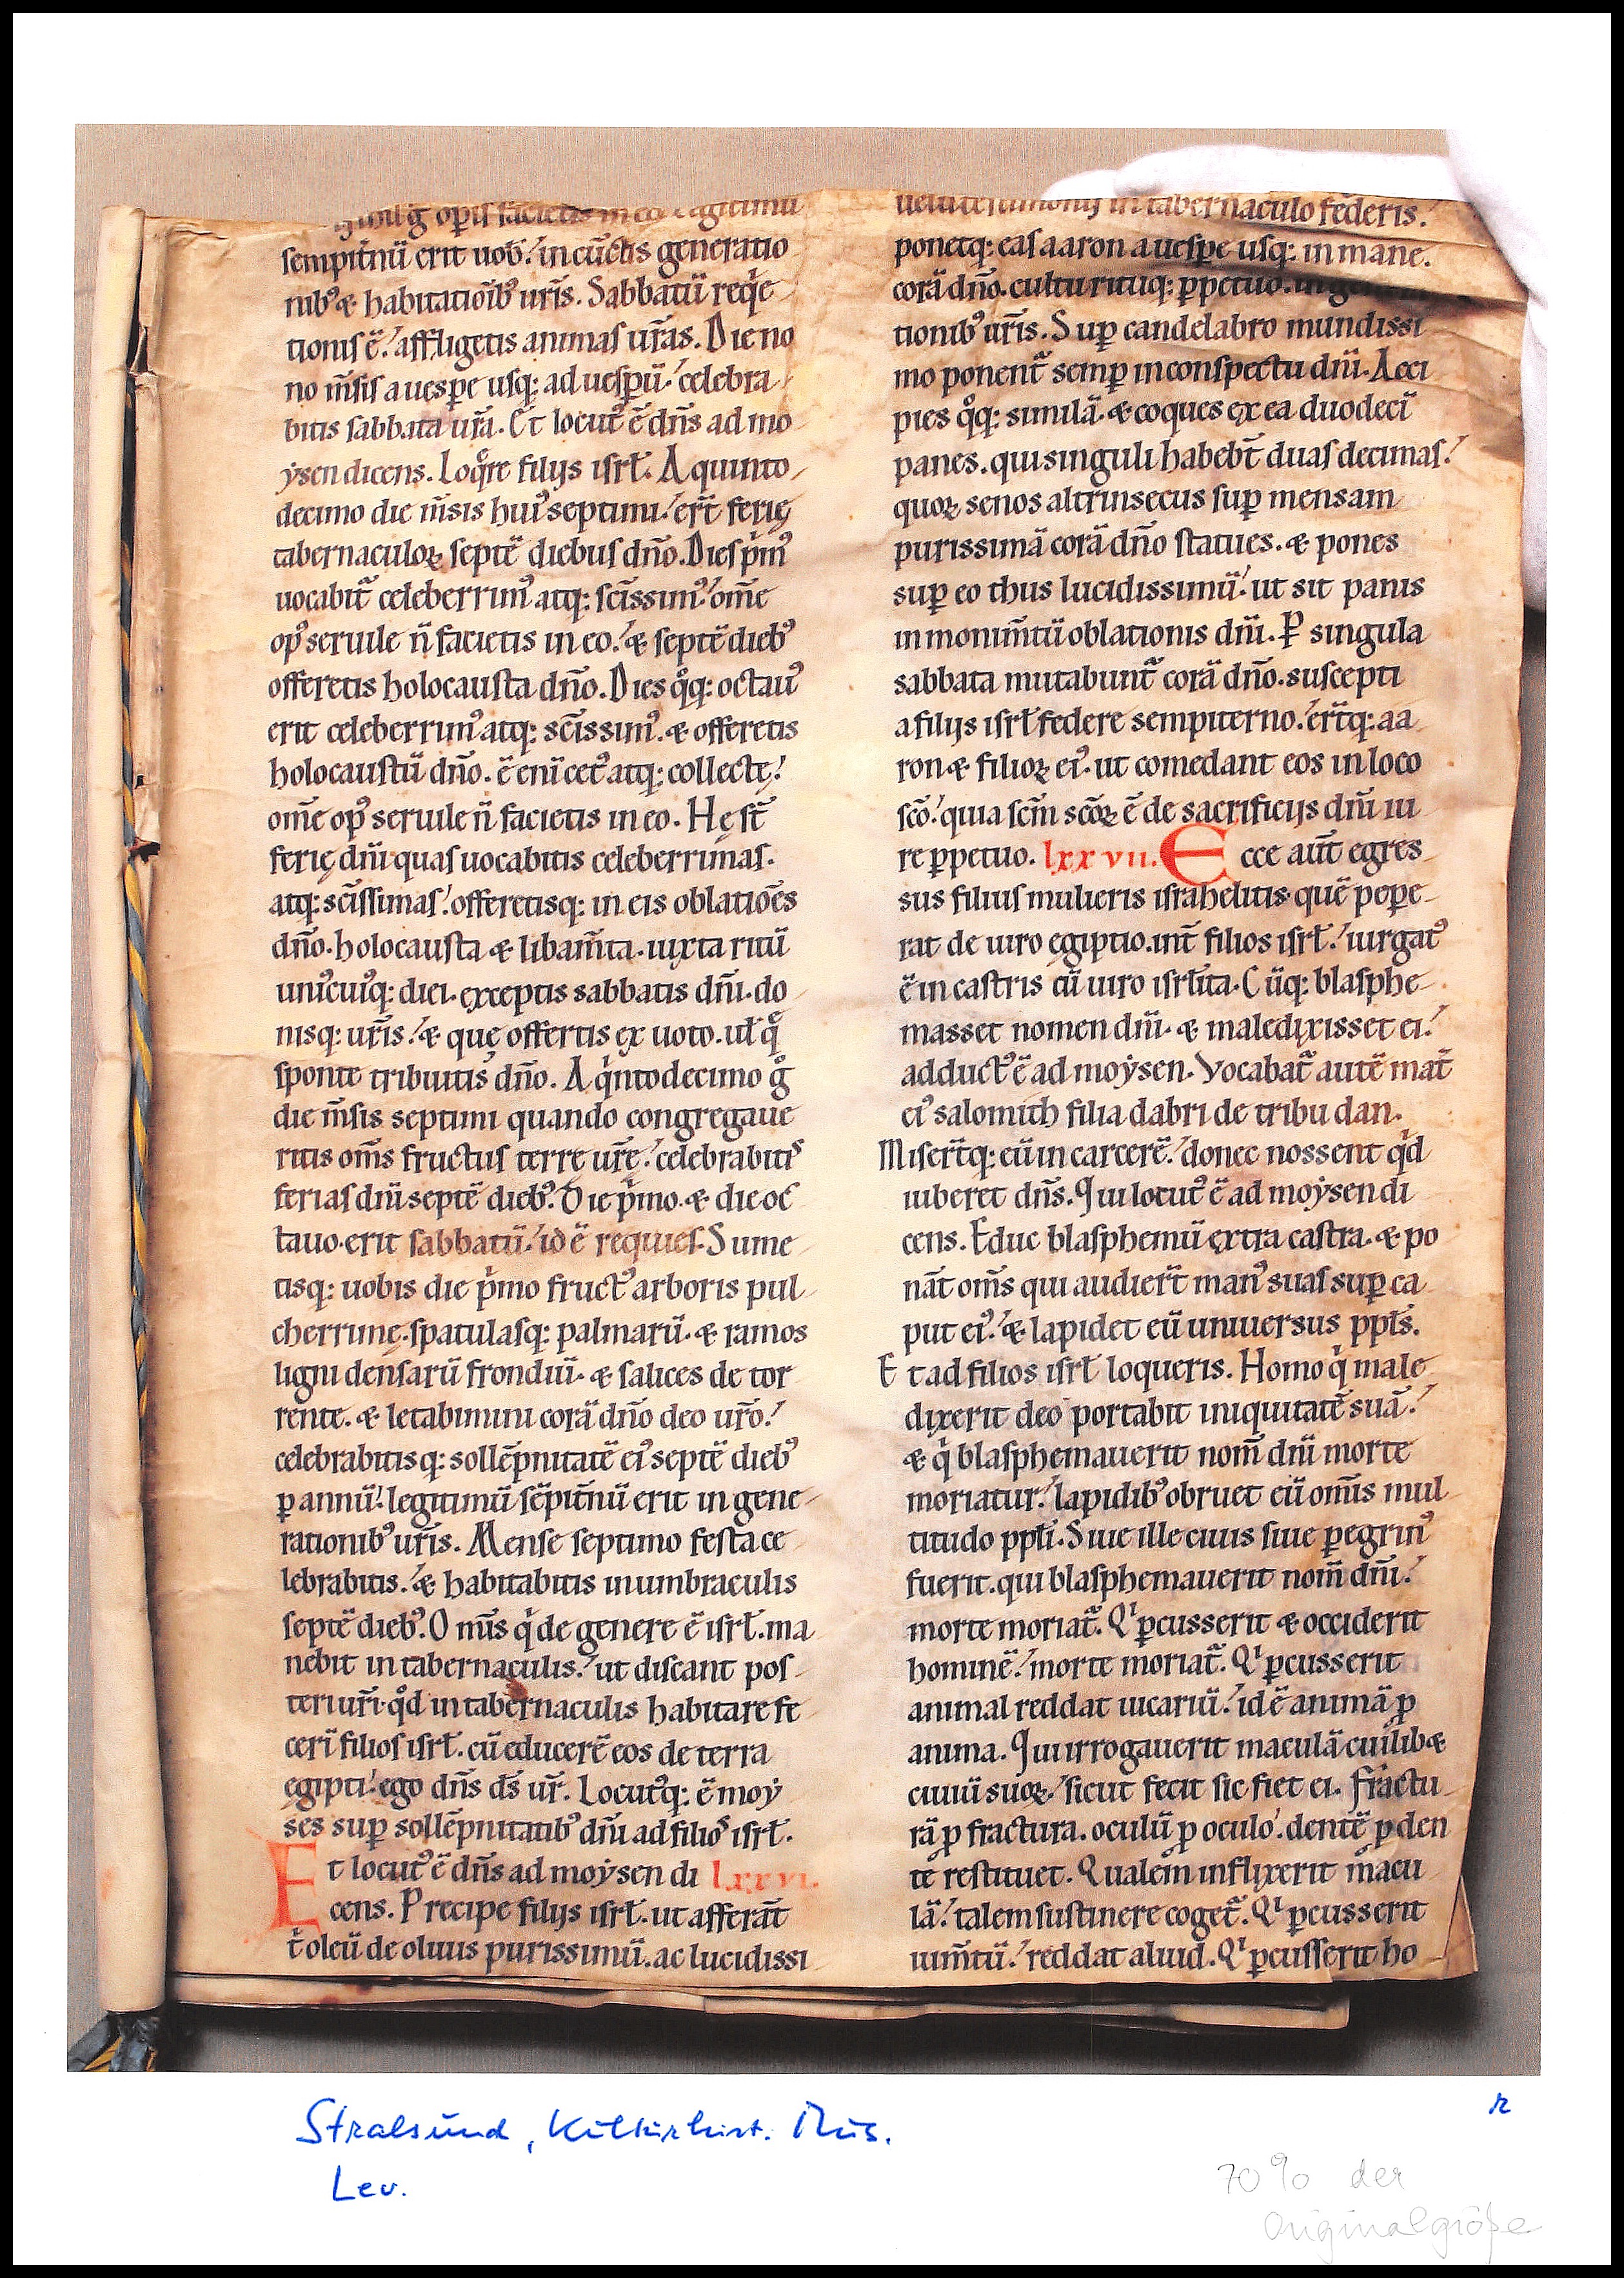 opis facietis in eo legitimū
sempit̄nū erit uob᷒. in cūctis generatio
nib᷒ & habitatioīb᷒ ur̄is. Sabbatū req̇e
tionis ē. affligetis animas ur̄as. Die no
no m̄sis a uesꝑe usq: ad uesꝑū. celebra
bitis sabbata ur̄a. Et locut᷒ ē dn̄s ad mo
ẏsen dicens. Loq̊re filijs isrł. A quinto
decimo die m̄sis hui᷒ septimi. er̄t ferię
tabernaculoꝝ septē diebus dn̄o. Dies p̍m᷒
uocabit̃ celeberrim᷒ atq: sc̄issim᷒. om̄e
op᷒ seruile n̄ facietis in eo. & septē dieb᷒
offeretis holocausta dn̄o. Dies q̊q: octau᷒
erit celeberrim᷒ atq: sc̄issim᷒. & offeretis
holocaustū dn̄o. ē eni cet᷒ atq: collectę.
om̄e op᷒ seruile n̄ facietis in eo. Hę st̄
ferię dn̄i quas uocabitis celeberrimas.
atq: sc̄issimas. offeretisq: in eis oblatiōes
dn̄o. holocausta & libam̄ta. iuxta ritū
uni᷒cui᷒q: diei. exceptis sabbatis dn̄i. do
nisq: ur̄is. & quę offertis ex uoto. uł q̊
sponte tribuitis dn̄o. A q̍ntodecimo g̊
die m̄sis septimi quando congregaue
ritis om̄s fructus terrę ur̄ę. celebrabitis
ferias dn̄i septē dieb᷒. Die p̍mo. & die oc
tauo. erit sabbatū. id ē requies. Sume
tisq: uobis die p̍mo fruct᷒ arboris pul
cherrimę. spatulasq: palmarū. & ramos
ligni densarū frondiū. & salices de tor
rente. & letabimini corā dn̄o deo ur̄o.
celebrabitisq: sollēpnitatē ei᷒ septē dieb᷒
ꝑ annū. legitimū sēpit̄nū erit in gene
rationib᷒ ur̄is. Mense septimo festa ce
lebrabitis. & habitabitis in umbraculis
septē dieb᷒. Om̄is q̍ de genere ē isrł. ma
nebit in tabernaculis. ut discant pos
teri ur̄i. q̊d in tabernaculis habitare fe
cerī filios isrł. cū educerē eos de terra
egipti. ego dn̄s ds̄ ur̄. Locut᷒q: ē moẏ
ses suꝑ sollēpnitatib᷒ dn̄i ad filios isrł.
Et locut᷒ ē dn̄s ad moẏsen di lxxvi.
cens. Precipe filijs isrł. ut afferāt
t̍ oleū de oliuis purissimū. ac lucidissi
in tabernaculo federis.
ponetq: eas aaron a uesꝑe usq: in mane.
corā dn̄o. cultu rituq: ꝑpetuo. in
tionib᷒ ur̄is. Suꝑ candelabro mundissi
mo ponent̃ semꝑ in conspectu dn̄i. Acci
pies q̊q: similā. & coques ex ea duodecī
panes. qui singuli habebt̄ duas decimas.
quoꝝ senos altrinsecus suꝑ mensam
purissimā corā dn̄o statues. & pones
suꝑ eo thus lucidissimū. ut sit panis
in monim̄tū oblationis dn̄i. P singula
sabbata mutabunt̃ corā dn̄o. suscepti
a filijs isrł federe sempiterno. er̄tq: aa
ron & filioꝝ ei᷒. ut comedant eos in loco
sc̄o. quia sc̄m sc̄oꝝ ē de sacrificijs dn̄i iu
re ꝑpetuo. lxxvii. Ecce aut̄ egres
sus filius mulieris israhelitis. quē peꝑe
rat de uiro egiptio. int̄ filios isrł. iurgat᷒
ē in castris cū uiro isrłita. Cūq: blasphe
masset nomen dn̄i. & maledixisset ei.
adduct᷒ ē ad moẏsen. Vocabat̃ autē mat̄
ei᷒ salomith filia dabri de tribu dan.
Miser̄tq: eū in carcerē. donec nossent q̍d
iuberet dn̄s. Qui locut᷒ ē ad moẏsen di
cens. Educ blasphemū extra castra. & po
nāt om̄s qui audier̄t man᷒ suas suꝑ ca
put ei᷒. & lapidet eū uniuersus ppłs.
Et ad filios isrł loqueris. Homo q̍ male
dixerit deo portabit iniquitatē suā.
& q̍ blasphemauerit nom̄ dn̄i morte
moriatur. lapidib᷒ obruet eū om̄is mul
titudo ppłi. Siue ille ciuis siue ꝑegrin᷒
fuerit. qui blasphemauerit nom̄ dn̄i.
morte moriat̃. Qi ꝑcusserit & occiderit
hominē. morte moriat̃. Qi ꝑcusserit
animal reddat uicariū. id ē animā ꝑ
anima. Qui irrogauerit maculā cuilib&
ciuiū suoꝝ. sicut fecit sic fiet ei. fractu
rā ꝑ fractura. oculū ꝑ oculo. dentē ꝑ den
te restituet. Qualem inflixerit macu
lā. talem sustinere coget̃. Qi ꝑcusserit
ium̄tū. reddat aliud. Qi ꝑcusserit ho
Stralsund, Kulturhist. Mus.
Lev.
r
70% der
Originalgröße